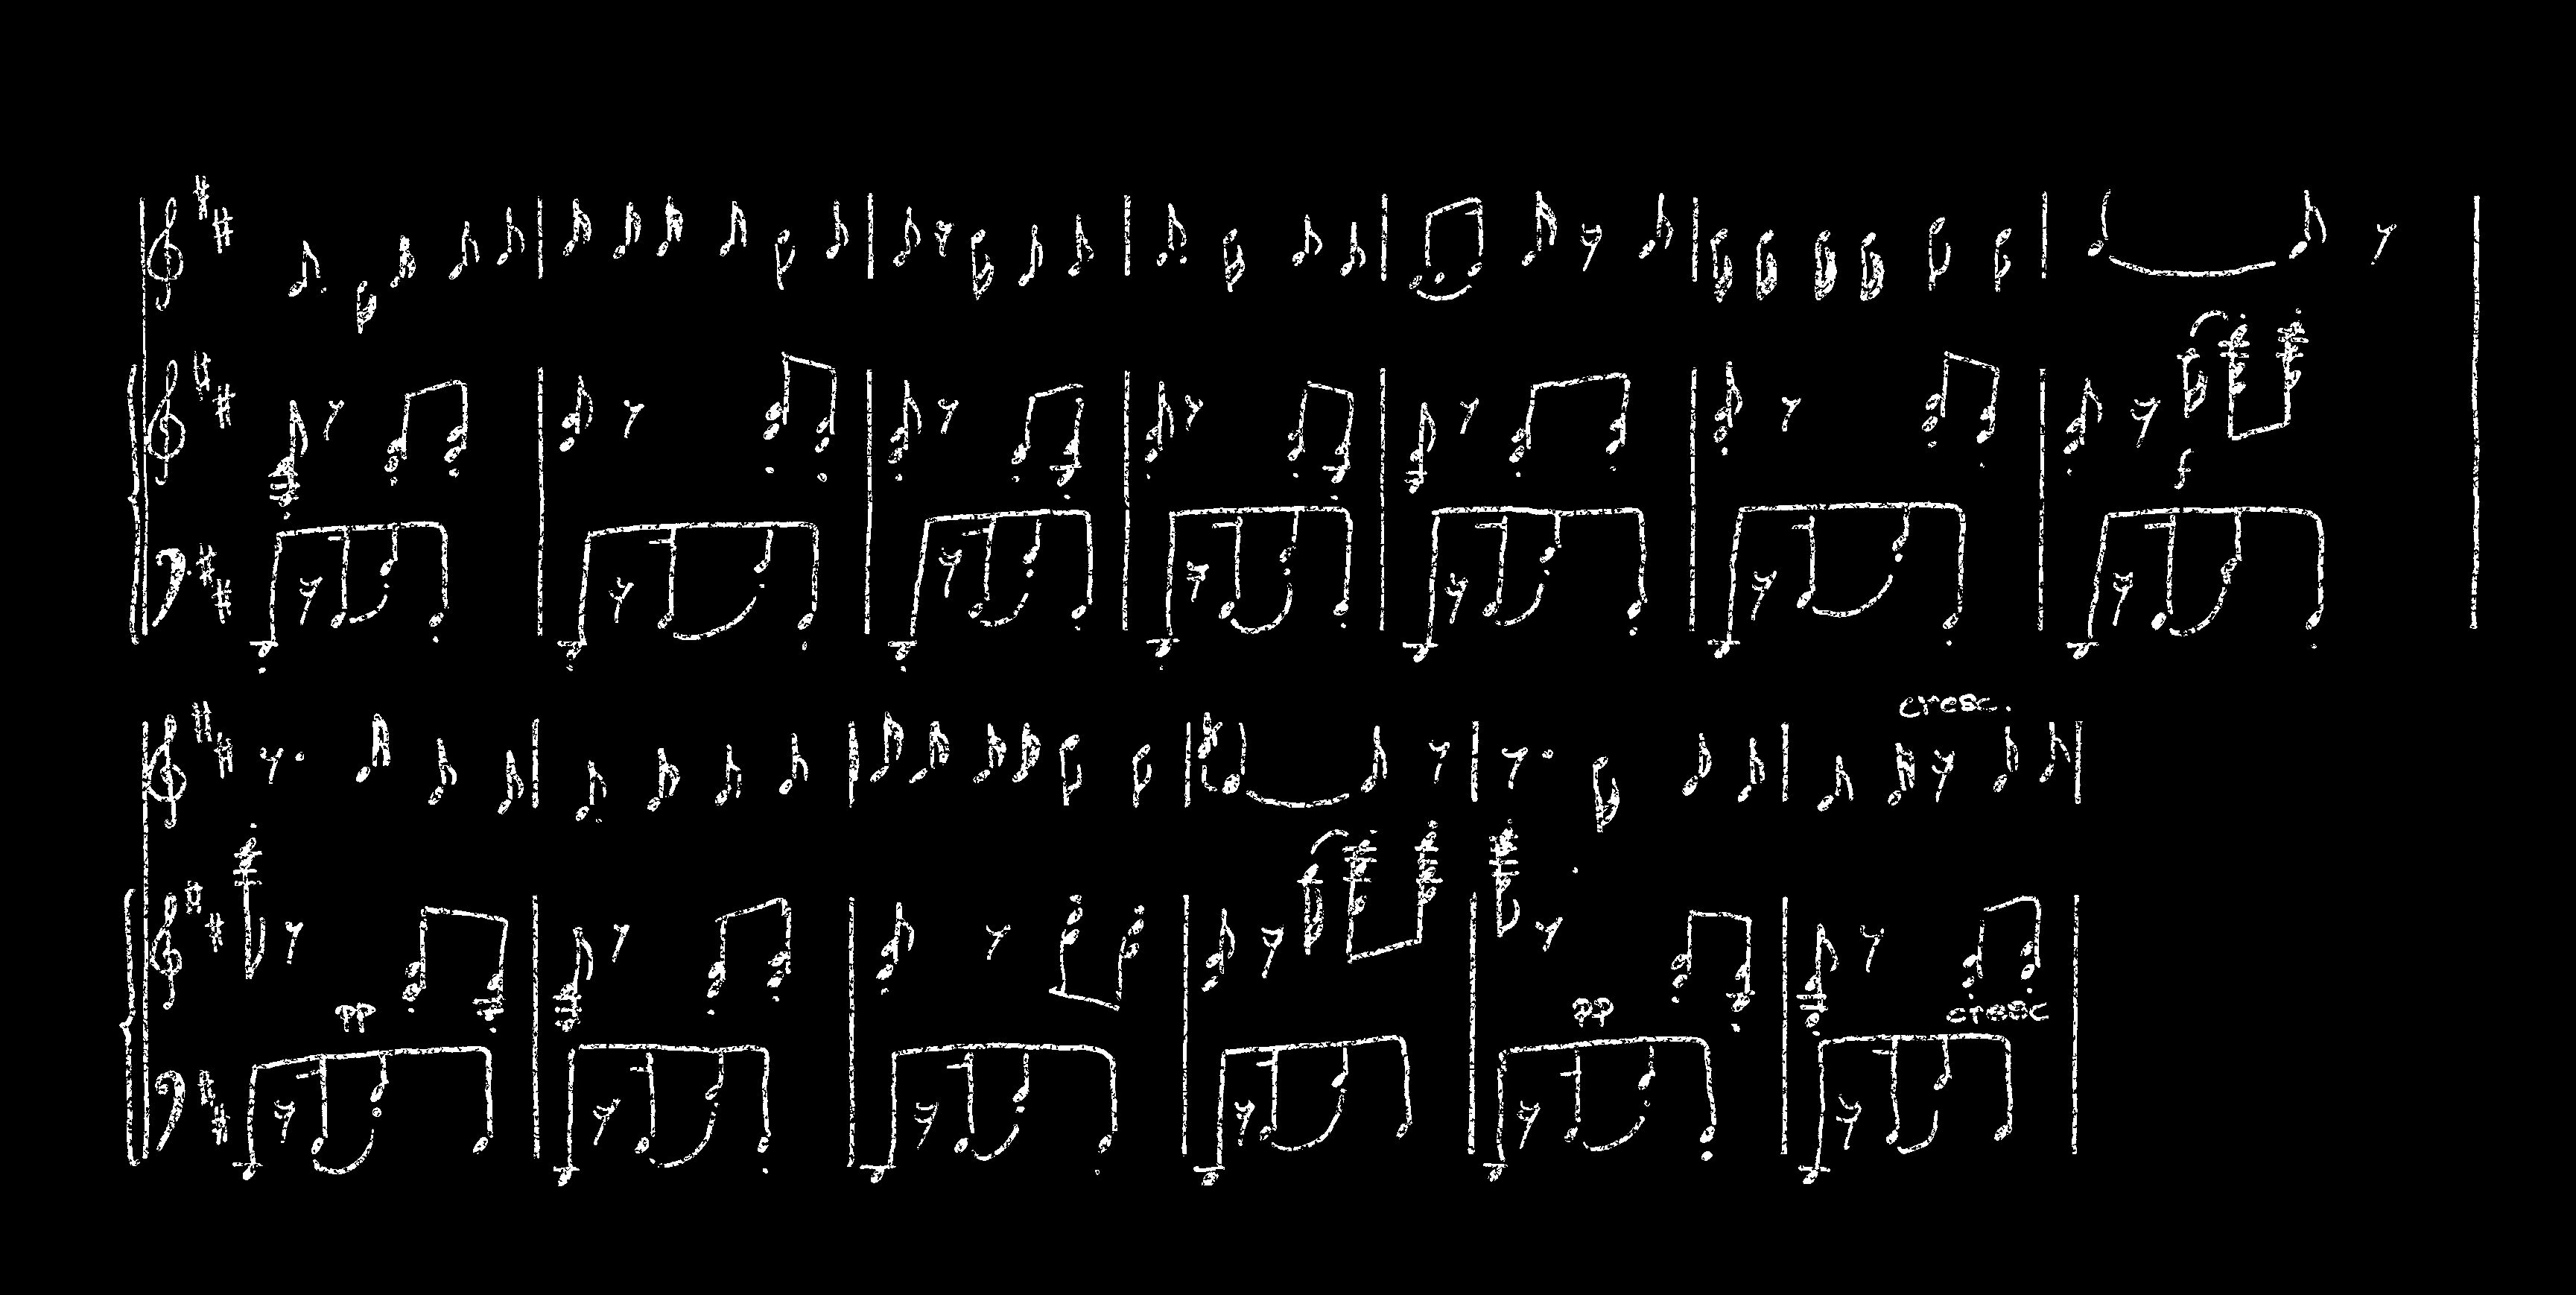 f
cresc.
pp
pp
cresc